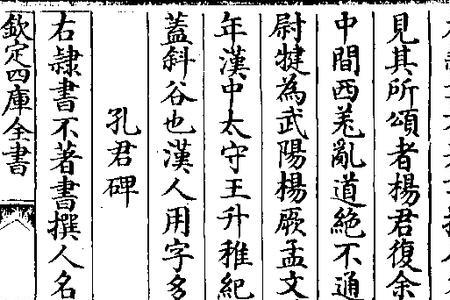 見其所頌者楊君復余
中間西羌亂道絶不通
尉犍為武陽楊厥孟文
年漢中太守王升稚紀
蓋斜谷也漢人用字多
孔君碑
右隷書不著書撰人名
欽定四庫全書